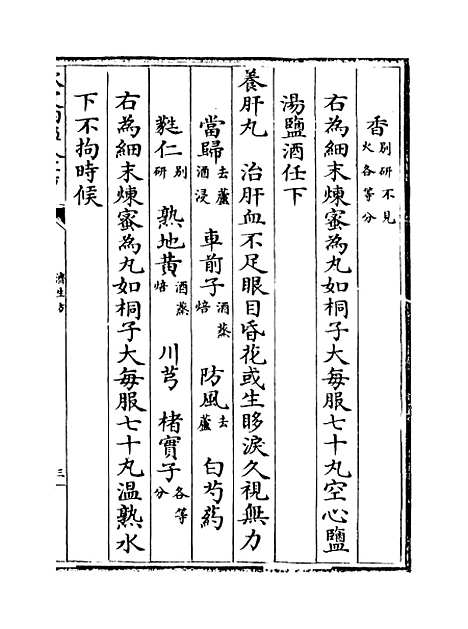 香别研不見火各等分
右為細末煉蜜為丸如桐子大每服七十丸空心鹽
湯鹽酒任下
養肝丸　治肝血不足眼目昏花或生眵淚久視無力
當歸去蘆酒浸　車前子酒蒸焙　防風去蘆　白芍藥
蕤仁别研　熟地黄酒蒸焙　川芎　楮實子各等分
右為細末煉蜜為丸如桐子大每服七十丸温熟水
下不拘時候
濟生方